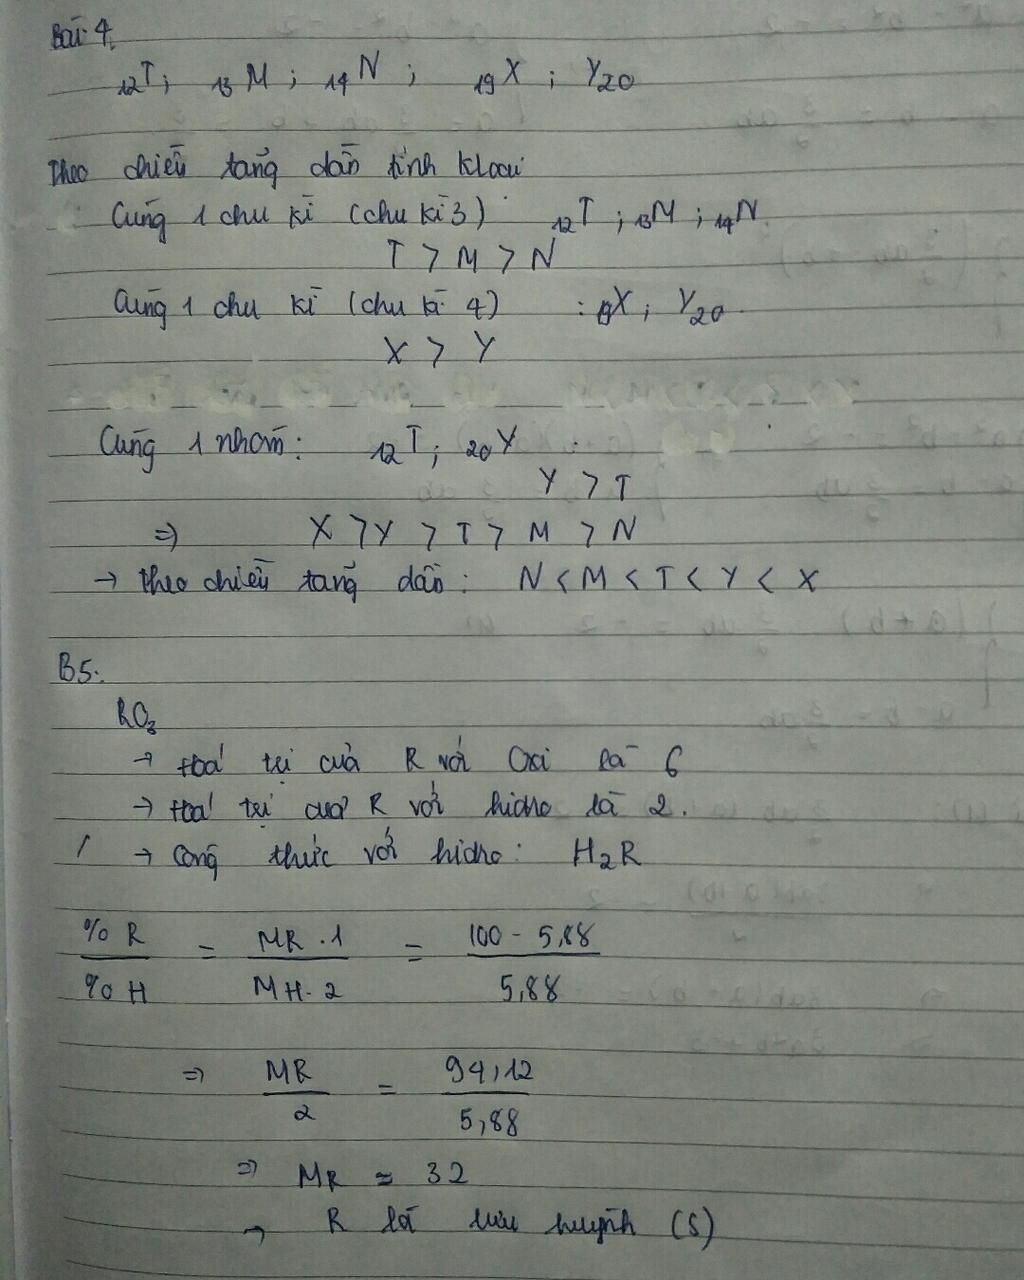 Bài 4.
₁₂T; ₁₃M; ₁₄N; ₁₉X; Y₂₀
Theo chiều tăng dần tính kloại
Cùng 1 chu kì (chu kì 3) : ₁₂T; ₁₃M; ₁₄N.
T > M > N
Cùng 1 chu kì (chu kì 4) : ₁₉X; Y₂₀.
X > Y
Cùng 1 nhóm: ₁₂T; ₂₀Y :
Y > T
=> X > Y > T > M > N
→ theo chiều tăng dần: N < M < T < Y < X
B5.
RO₃
→ Hoá trị của R với Oxi là 6
→ Hoá trị của R với hidro là 2.
→ Công thức với hidro: H₂R
%R / %H = MR.1 / MH.2 = 100 - 5,88 / 5,88
=> MR / 2 = 94,12 / 5,88
=> MR ≈ 32
→ R là lưu huỳnh (S)